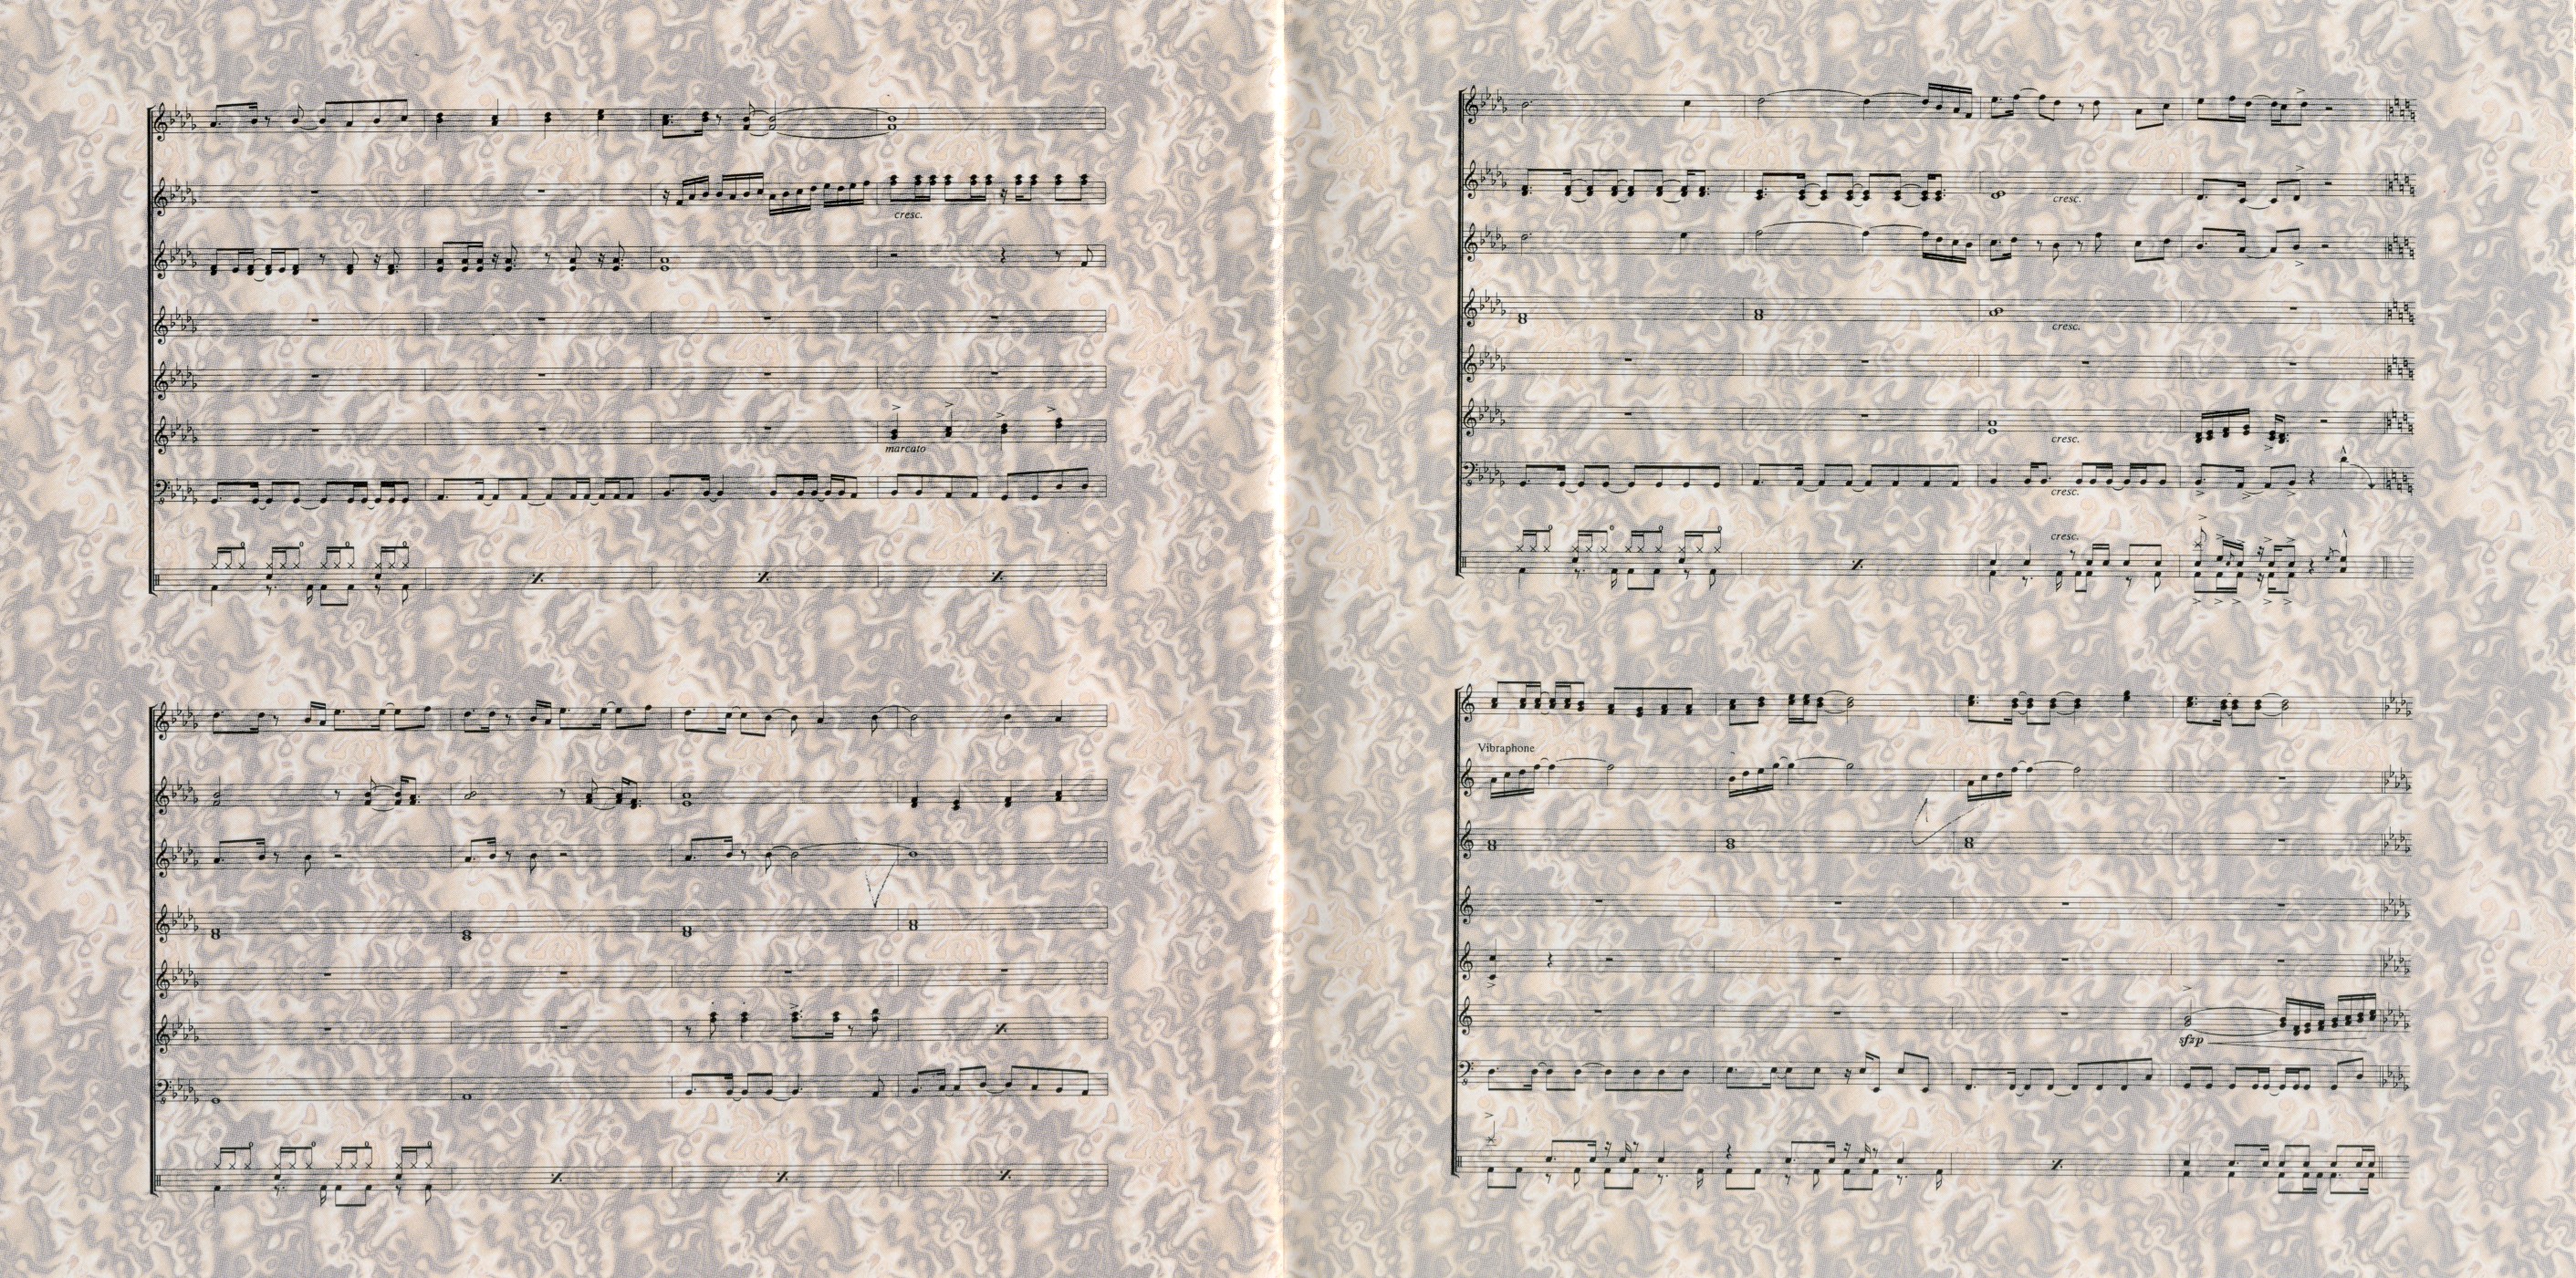 cresc.
marcato
cresc.
cresc.
cresc.
cresc.
cresc.
Vibraphone
sfzp